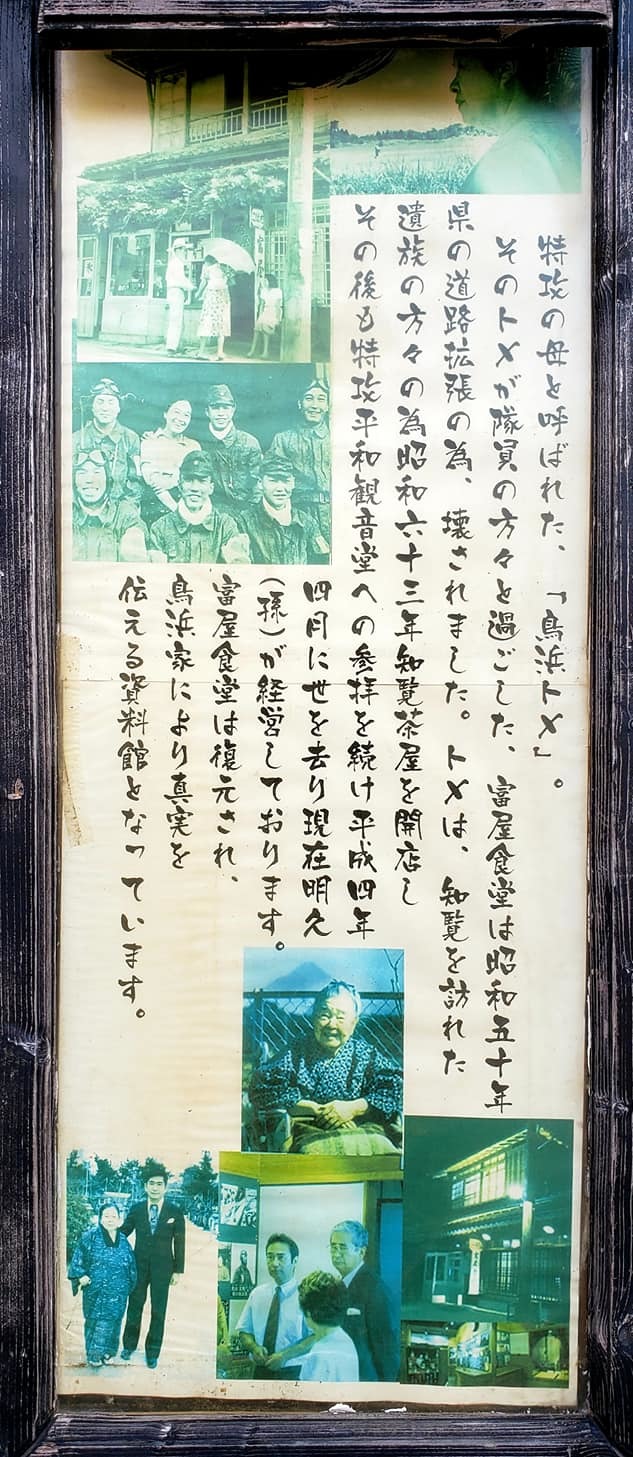 特攻の母と呼ばれた、「鳥浜トメ」。
そのトメが隊員の方々と過ごした、富屋食堂は昭和五十年
県の道路拡張の為、壊されました。トメは、知覧を訪れた
遺族の方々の為昭和六十三年知覧茶屋を開店し
その後も特攻平和観音堂への参拝を続け平成四年
四月に世を去り現在明久
(孫)が経営しております。
富屋食堂は復元され、
鳥浜家により真実を
伝える資料館となっています。